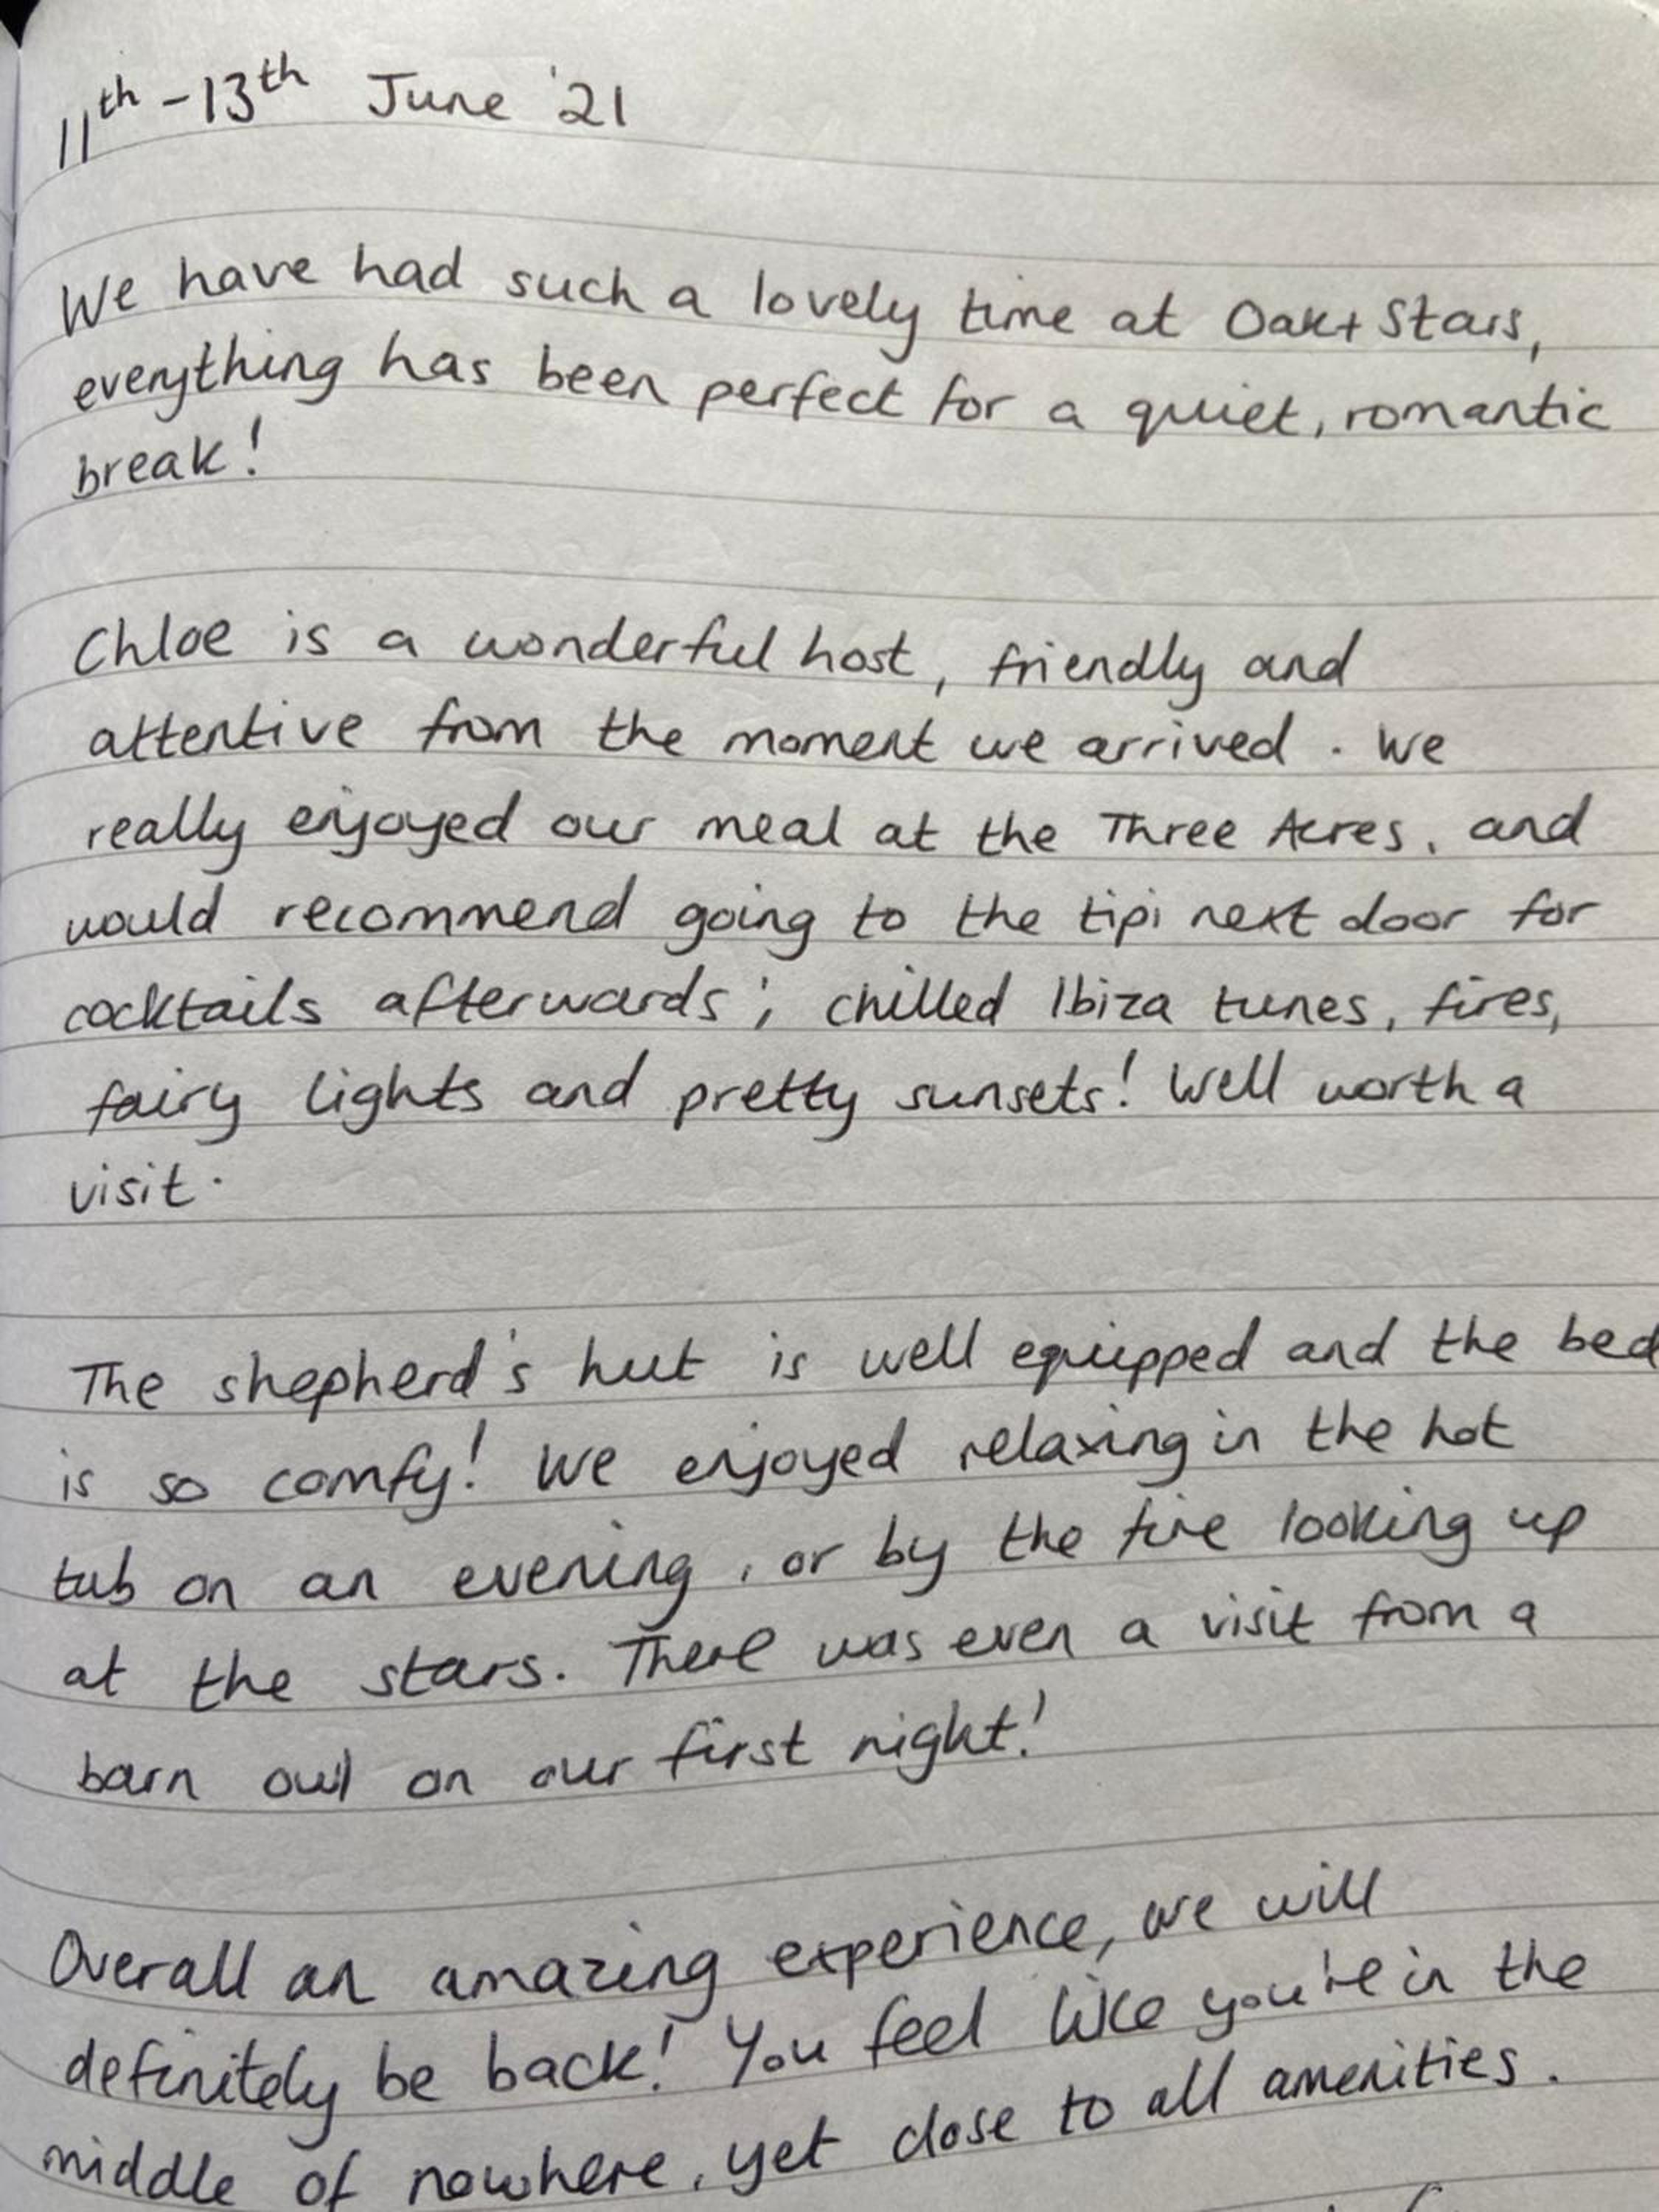 11th - 13th June '21
We have had such a lovely time at Oak + Stars,
everything has been perfect for a quiet, romantic
break!
Chloe is a wonderful host, friendly and
attentive from the moment we arrived. We
really enjoyed our meal at the Three Acres, and
would recommend going to the tipi next door for
cocktails afterwards; chilled Ibiza tunes, fires,
fairy lights and pretty sunsets! Well worth a
visit.
The shepherd's hut is well equipped and the bed
is so comfy! We enjoyed relaxing in the hot
tub on an evening, or by the fire looking up
at the stars. There was even a visit from a
barn owl on our first night!
Overall an amazing experience, we will
definitely be back! You feel like you're in the
middle of nowhere, yet close to all amenities.